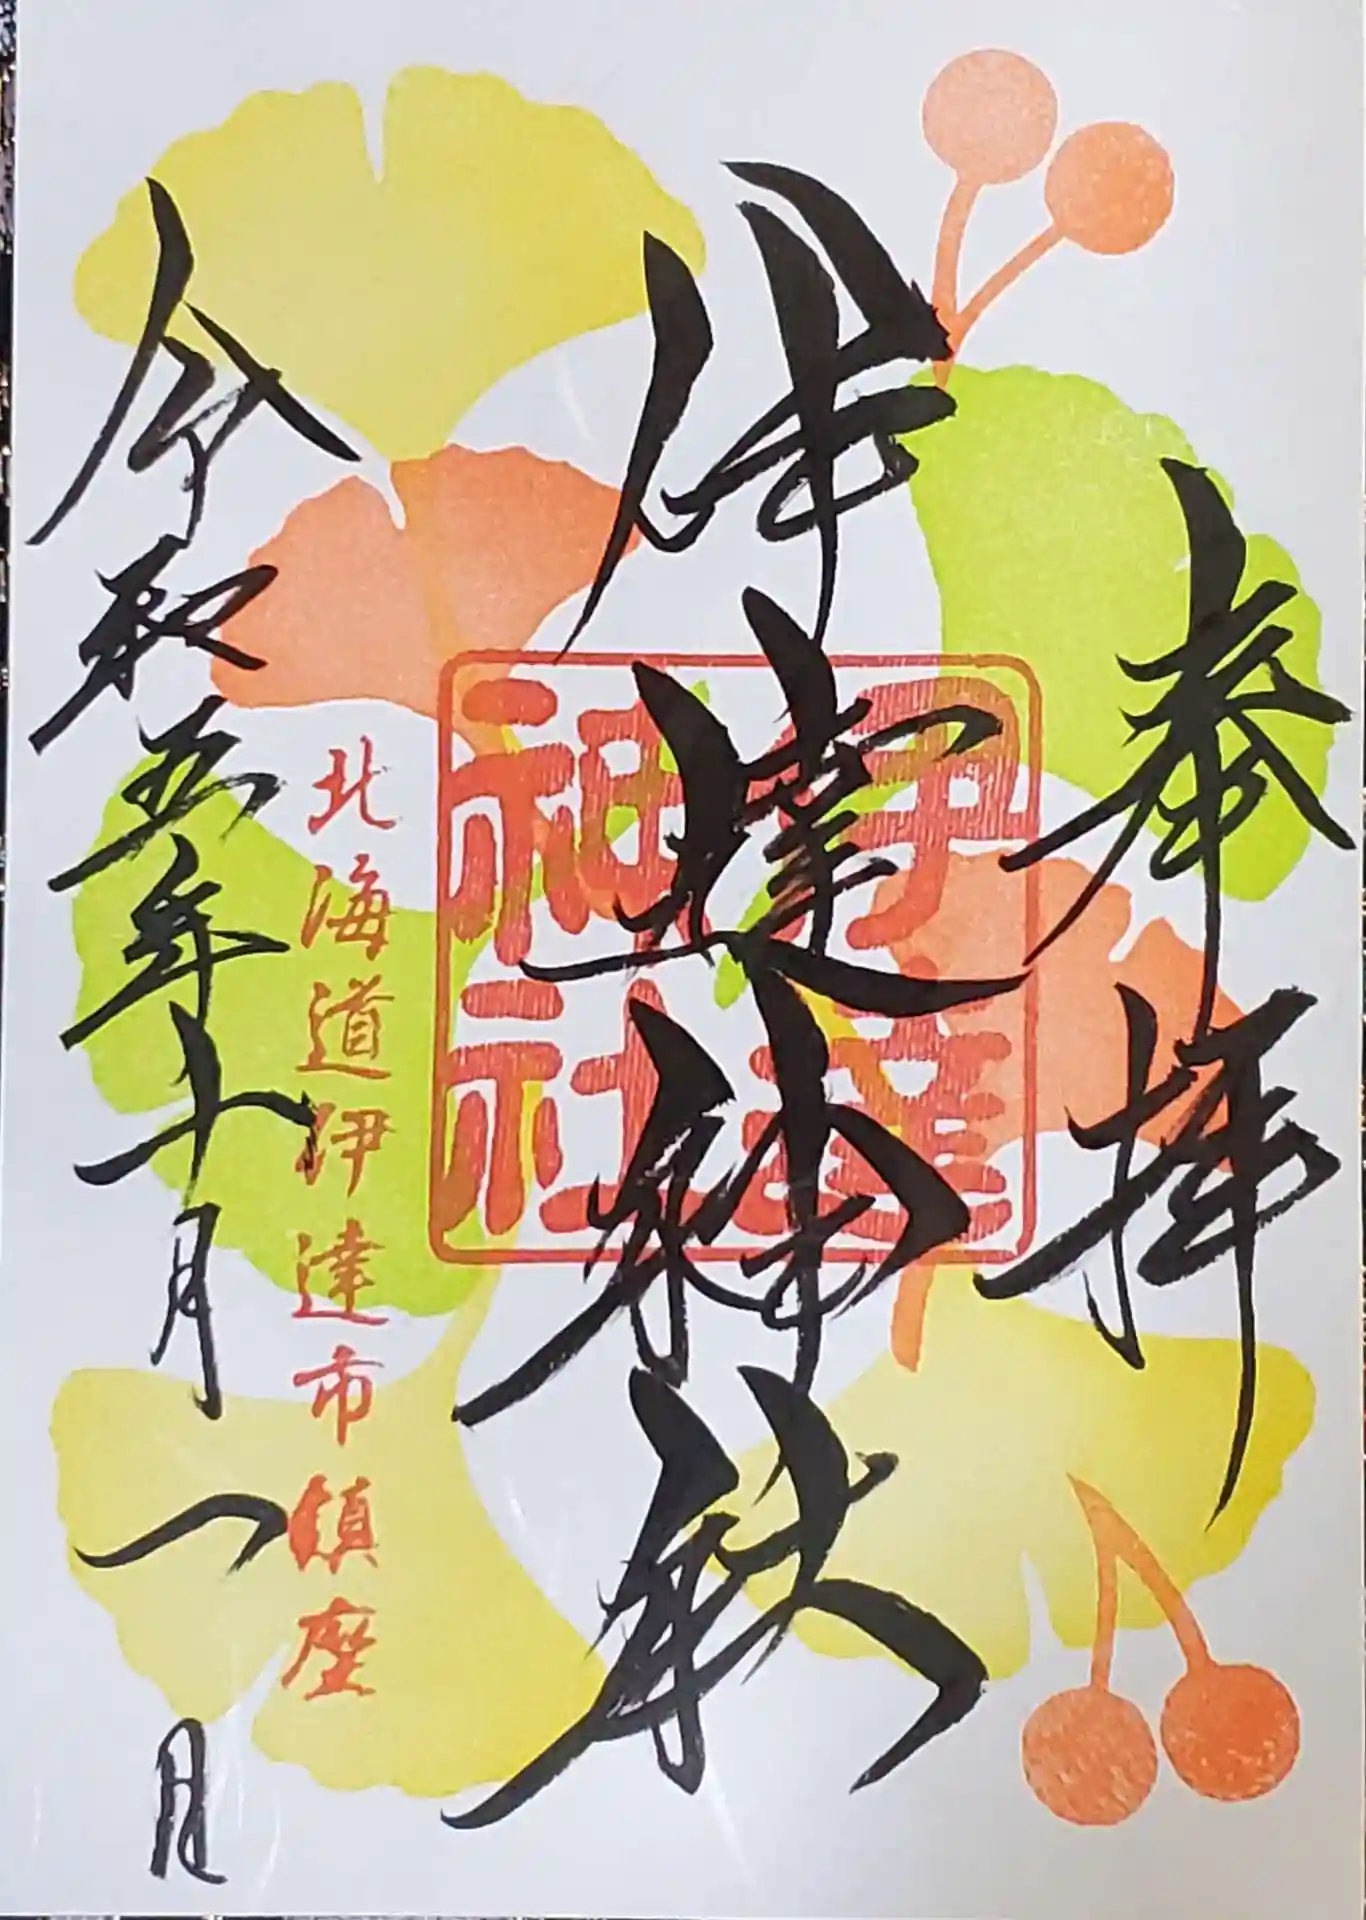 奉拝
伊達神社
伊達
神社
北海道伊達市鎮座
令和五年十月一日